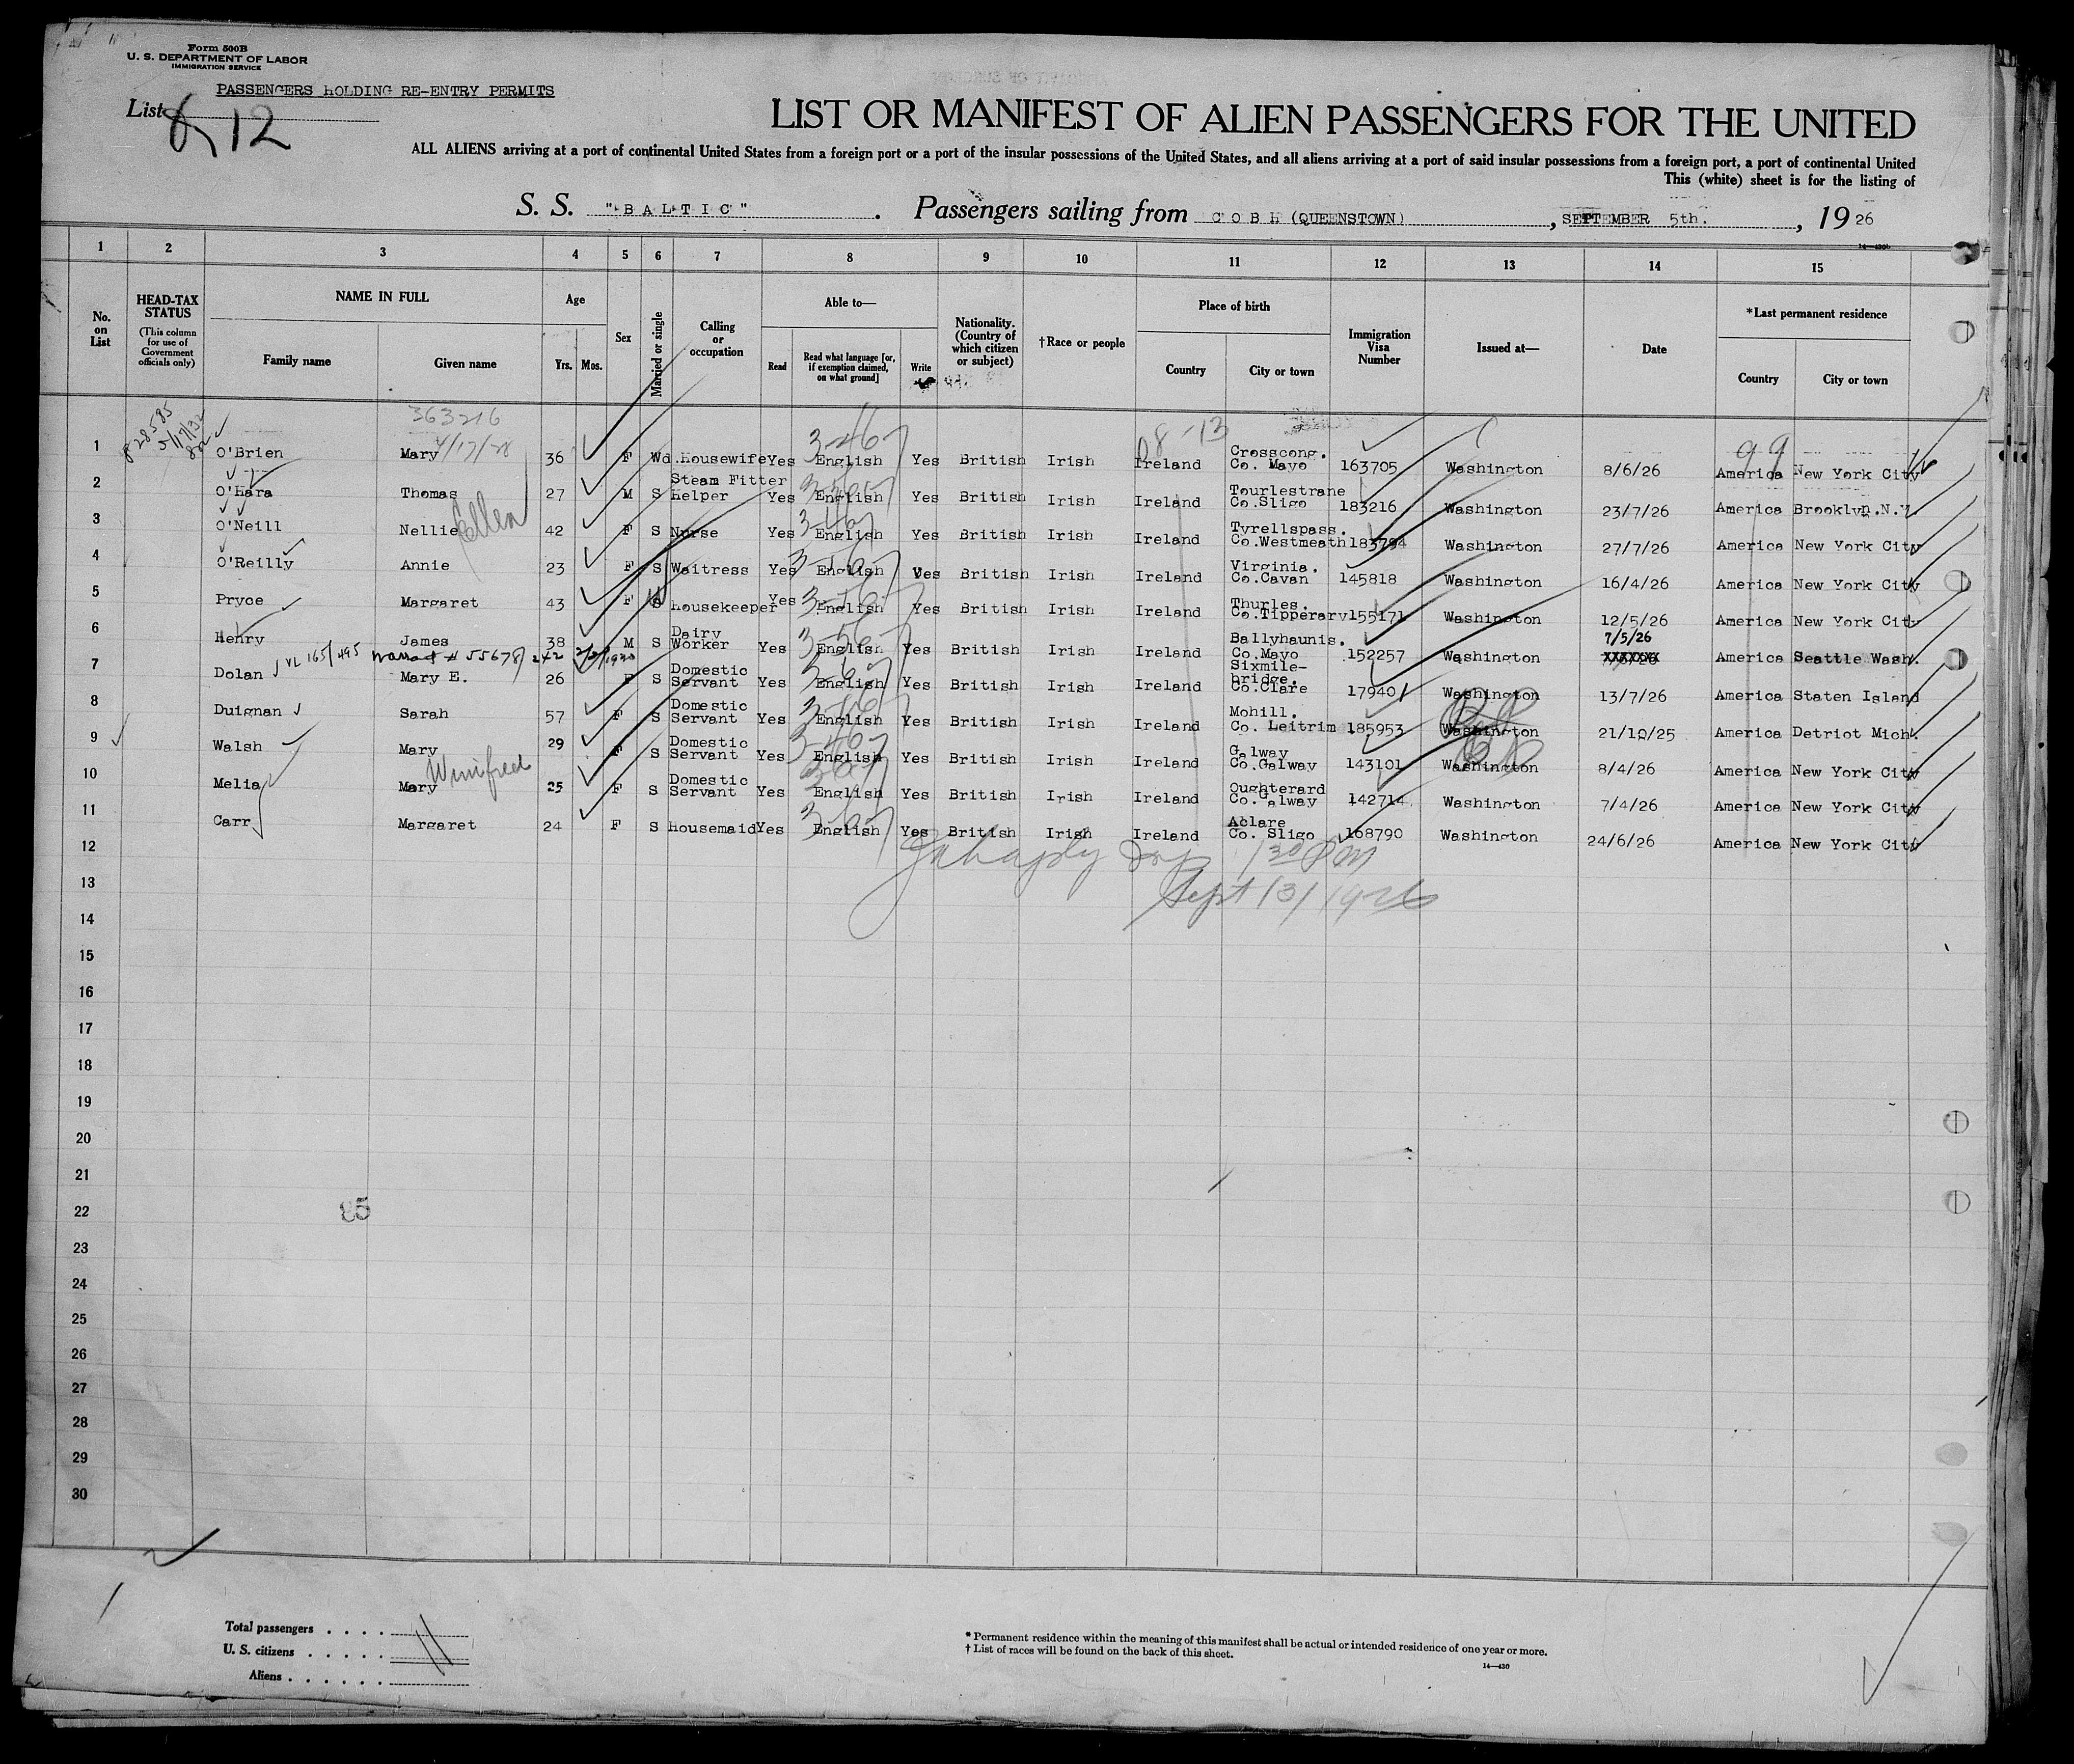 Form 500B
U. S. DEPARTMENT OF LABOR
IMMIGRATION SERVICE
PASSENGERS HOLDING RE-ENTRY PERMITS
List 12
LIST OR MANIFEST OF ALIEN PASSENGERS FOR THE UNITED
ALL ALIENS arriving at a port of continental United States from a foreign port or a port of the insular possessions of the United States, and all aliens arriving at a port of said insular possessions from a foreign port, a port of continental United
This (white) sheet is for the listing of
S. S. "BALTIC". Passengers sailing from COBH (QUEENSTOWN), SEPTEMBER 5th., 1926
14—430b
1 2 3 4 5 6 7 8 9 10 11 12 13 14 15
No. on List
HEAD-TAX STATUS
(This column for use of Government officials only)
NAME IN FULL
Family name
Given name
Age
Yrs. Mos.
Sex
Married or single
Calling or occupation
Able to—
Read
Read what language [or, if exemption claimed, on what ground]
Write
Nationality. (Country of which citizen or subject)
†Race or people
Place of birth
Country
City or town
Immigration Visa Number
Issued at—
Date
*Last permanent residence
Country
City or town
828585 363216 3-46 08-13 99
5/17/32 4/17/28
1 O'Brien Mary 36 F Wd. Housewife Yes English Yes British Irish Ireland Crosscong. Co. Mayo 163705 Washington 8/6/26 America New York City
2 O'Hara Thomas 27 M S Steam Fitter Helper Yes English Yes British Irish Ireland Tourlestrane Co.Sligo 183216 Washington 23/7/26 America Brooklyn.N.Y
3 O'Neill Nellie Ellen 42 F S Nurse Yes English Yes British Irish Ireland Tyrellspass. Co.Westmeath 183794 Washington 27/7/26 America New York City
4 O'Reilly Annie 23 F S Waitress Yes English Yes British Irish Ireland Virginia. Co.Cavan 145818 Washington 16/4/26 America New York City
5 Pryce Margaret 43 F S Housekeeper Yes English Yes British Irish Ireland Thurles. Co.Tipperary 155171 Washington 12/5/26 America New York City
6 Henry James 38 M S Dairy Worker Yes English Yes British Irish Ireland Ballyhaunis. Co.Mayo 152257 Washington 7/5/26 America Seattle Wash.
VL 165/495 Warrant # 55678/242
7 Dolan Mary E. 26 F S Domestic Servant Yes English Yes British Irish Ireland Sixmile-bridge. Co.Clare 17940 Washington 13/7/26 America Staten Island
8 Duignan Sarah 57 F S Domestic Servant Yes English Yes British Irish Ireland Mohill. Co. Leitrim 185953 Washington 21/10/25 America Detriot Mich.
9 Walsh Mary 29 F S Domestic Servant Yes English Yes British Irish Ireland Galway Co.Galway 143101 Washington 8/4/26 America New York City
10 Melia Mary Winifred 25 F S Domestic Servant Yes English Yes British Irish Ireland Oughterard Co.Galway 142714 Washington 7/4/26 America New York City
11 Carr Margaret 24 F S Housemaid Yes English Yes British Irish Ireland Aclare Co. Sligo 168790 Washington 24/6/26 America New York City
12 1 30 PM
13 Sept 13/1926
14
15
16
17
18
19
20
21
22
23
24
25
26
27
28
29
30
Total passengers . . . . 11
U. S. citizens . . . . .
Aliens . . . . . .
* Permanent residence within the meaning of this manifest shall be actual or intended residence of one year or more.
† List of races will be found on the back of this sheet.
14—430